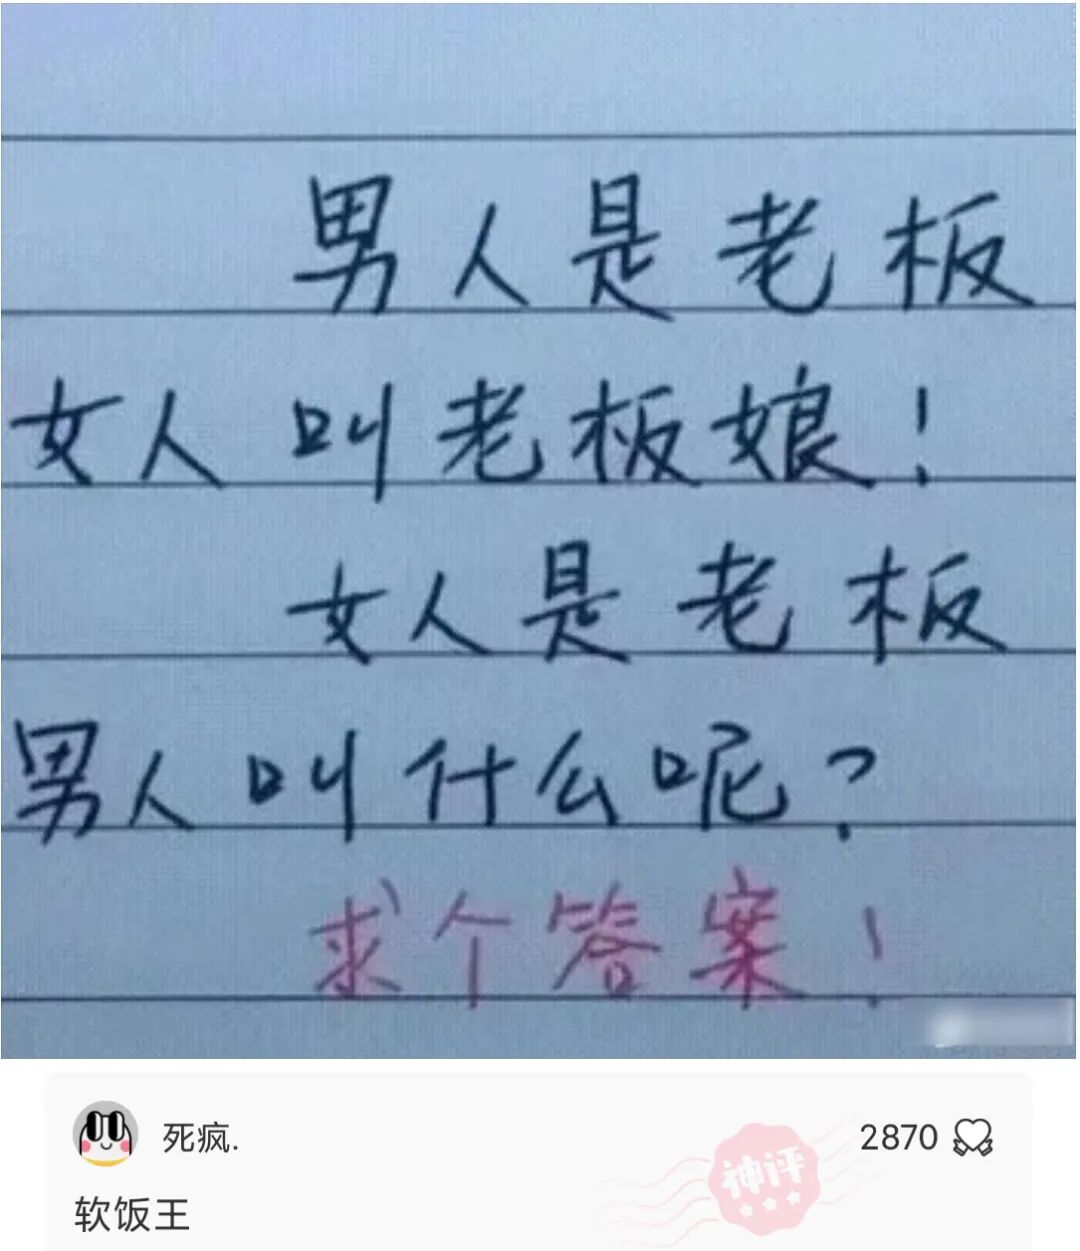 男人是老板
女人叫老板娘!
女人是老板
男人叫什么呢?
求个答案!
死疯.
2870
神评
软饭王